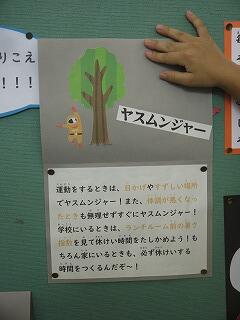 りこえ
！！！
ヤスムンジャー
運動をするときは、日かげやすずしい場所
でヤスムンジャー！また、体調が悪くなっ
たときも無理せずすぐにヤスムンジャー！
学校にいるときは、ランチルーム前の暑さ
指数を見て休けい時間をたしかめよう！も
ちろん家にいるときも、必ず休けいする
時間をつくるんだぞ〜！